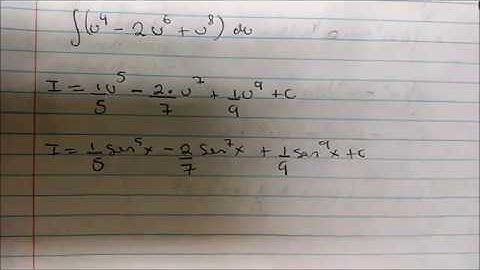 ∫(u⁴ - 2u⁶ + u⁸) du
I = 1/5 u⁵ - 2/7 · u⁷ + 1/9 u⁹ + c
I = 1/5 sen⁵x - 2/7 sen⁷x + 1/9 sen⁹x + c